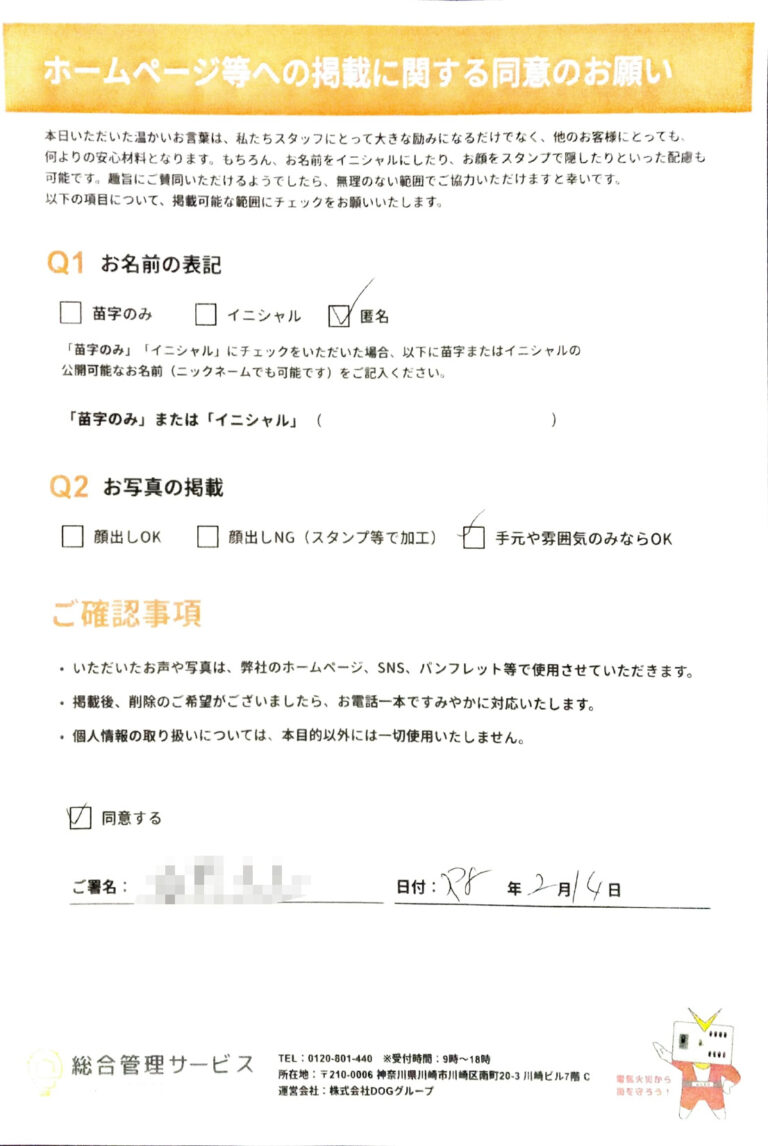 ホームページ等への掲載に関する同意のお願い
本日いただいた温かいお言葉は、私たちスタッフにとって大きな励みになるだけでなく、他のお客様にとっても、
何よりの安心材料となります。もちろん、お名前をイニシャルにしたり、お顔をスタンプで隠したりといった配慮も
可能です。趣旨にご賛同いただけるようでしたら、無理のない範囲でご協力いただけますと幸いです。
以下の項目について、掲載可能な範囲にチェックをお願いいたします。
Q1 お名前の表記
苗字のみ イニシャル 匿名
「苗字のみ」「イニシャル」にチェックをいただいた場合、以下に苗字またはイニシャルの
公開可能なお名前（ニックネームでも可能です）をご記入ください。
「苗字のみ」または「イニシャル」（ ）
Q2 お写真の掲載
顔出しOK 顔出しNG（スタンプ等で加工） 手元や雰囲気のみならOK
ご確認事項
・いただいたお声や写真は、弊社のホームページ、SNS、パンフレット等で使用させていただきます。
・掲載後、削除のご希望がございましたら、お電話一本ですみやかに対応いたします。
・個人情報の取り扱いについては、本目的以外には一切使用いたしません。
同意する
ご署名： 日付：R8 年 2 月 14 日
総合管理サービス
TEL：0120-801-440 ※受付時間：9時〜18時
所在地：〒210-0006 神奈川県川崎市川崎区南町20-3 川崎ビル7階 C
運営会社：株式会社DOGグループ
電気火災から
街を守ろう！